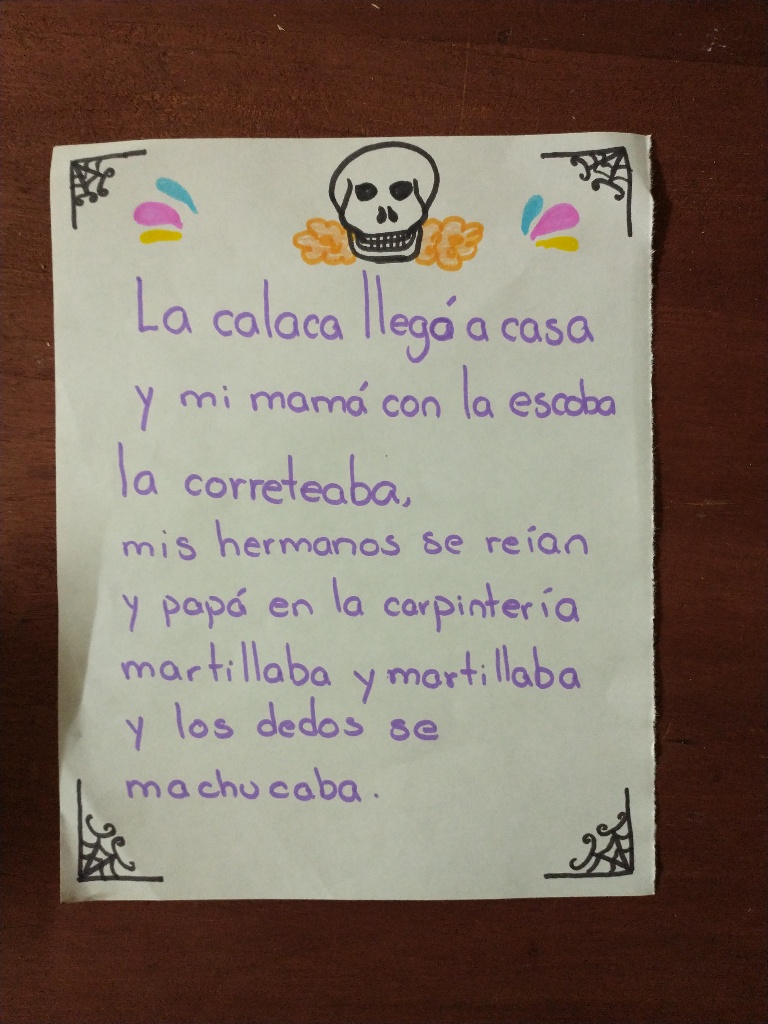 La calaca llegó a casa
y mi mamá con la escoba
la correteaba,
mis hermanos se reían
y papá en la carpintería
martillaba y martillaba
y los dedos se
machucaba.